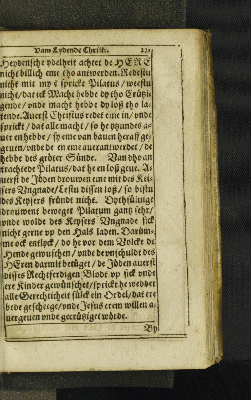 Vam Lydende Christi. 221
Heydensche ydelheit achtet de HERE
nicht billich eme tho antwerden. Redestu
nicht mit my? sprickt Pilatus / weestu
nicht / dat ick Macht hebbe dy tho Crützi-
gende / unde macht hebbe dy loß tho la-
tende. Auerst Christus redet eine in / unde
sprickt / dat alle macht / so he yemandes a-
uer en hebbe / sy eme van bauen heraff ge-
geuen / unde de en eme auerantwerdet / de
hebbe des gröter Sünde. Van dho an
trachtede Pilatus / dat he en loß geue. A-
uerst de Jöden drouwen eme mit des Kei-
sers Ungnade / Lestu dissen loß / so bistu
des Keysers fründt nicht.
drouwent beweget Pilatum gantz sehr /
unde wolde des Keysers Ungnade sick
nicht gerne up den Hals laden. Darüm-
me ock entlock / do he vor dem Volcke de
Hende gewuschen / unde de unschuldt des
HEren darmit betüget / de Jöden auerst
disses Rechtferdigen Blodt up sick unde
ere Kinder gewünschet / sprickt he wedder
alle Gerechticheit sülck ein Ordel / dat ere
bede geschege / unde Jesus erem willen a-
uergeuen unde gecrütziget wörde.
By